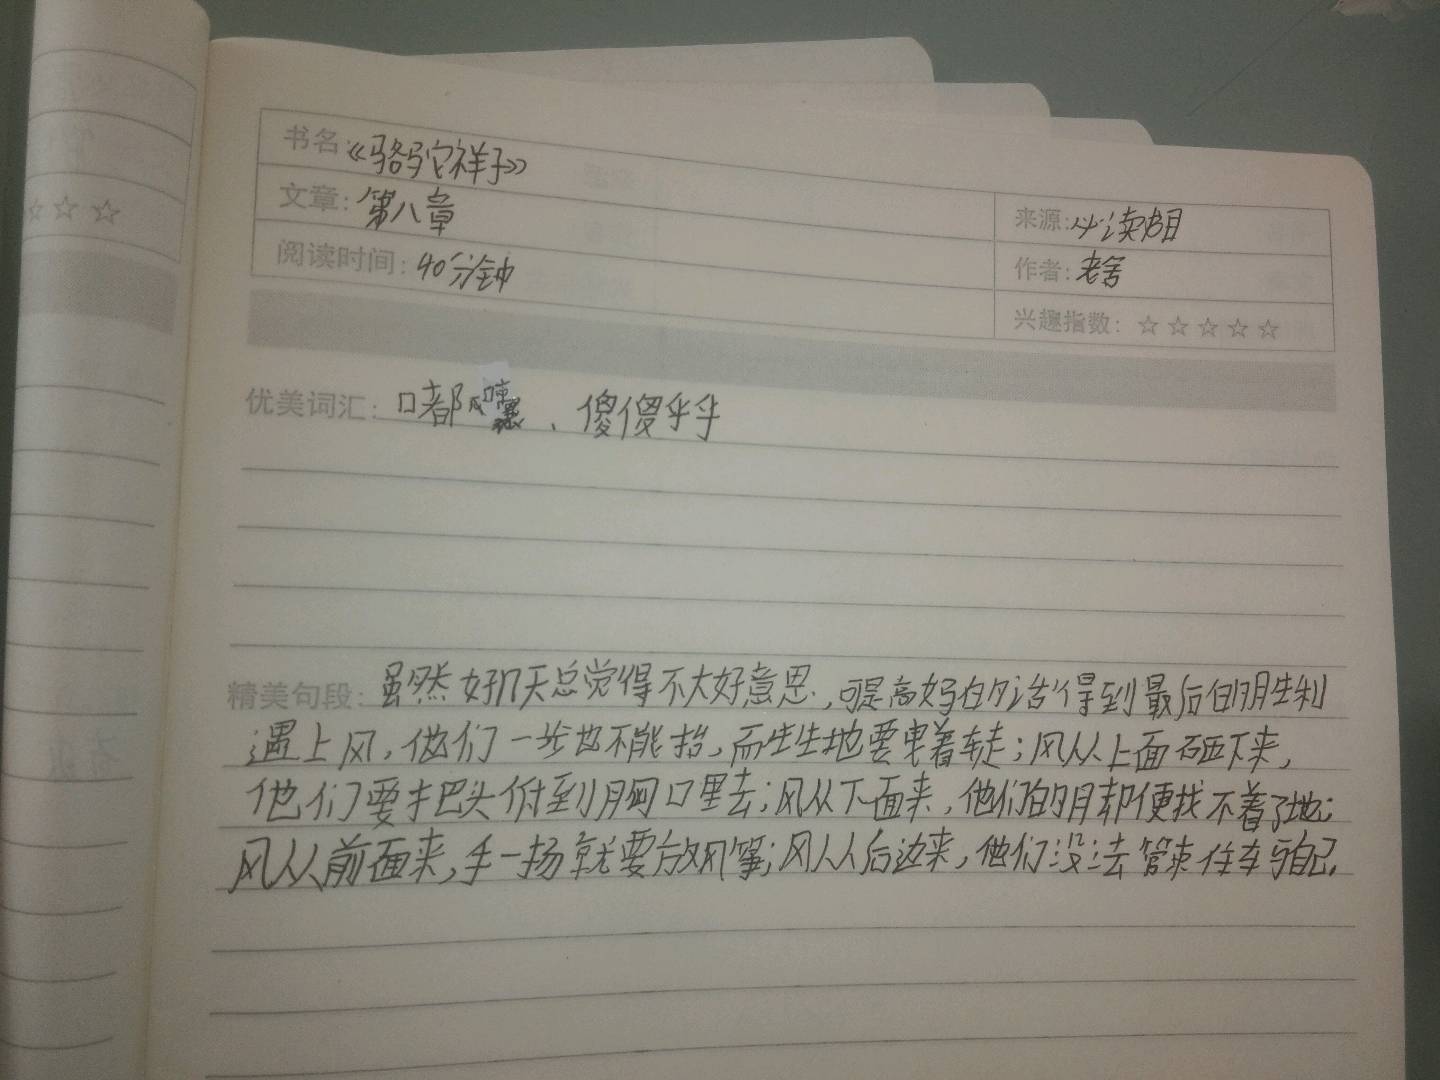 书名:《骆驼祥子》
文章:第八章
来源:必读书目
阅读时间:40分钟
作者:老舍
兴趣指数:☆☆☆☆☆
优美词汇:嘟囔、傻傻乎乎
精美句段:虽然好几天总觉得不大好意思,可是高妈的话得到最后的胜利
遇上风,他们一步也不能抬,而生生地要曳着车走;风从上面砸下来,
他们要把头低到胸口里去;风从下面来,他们的脚便找不着了地;
风从前面来,手一扬就要放风筝;风从后边来,他们没法管束住车与自己.